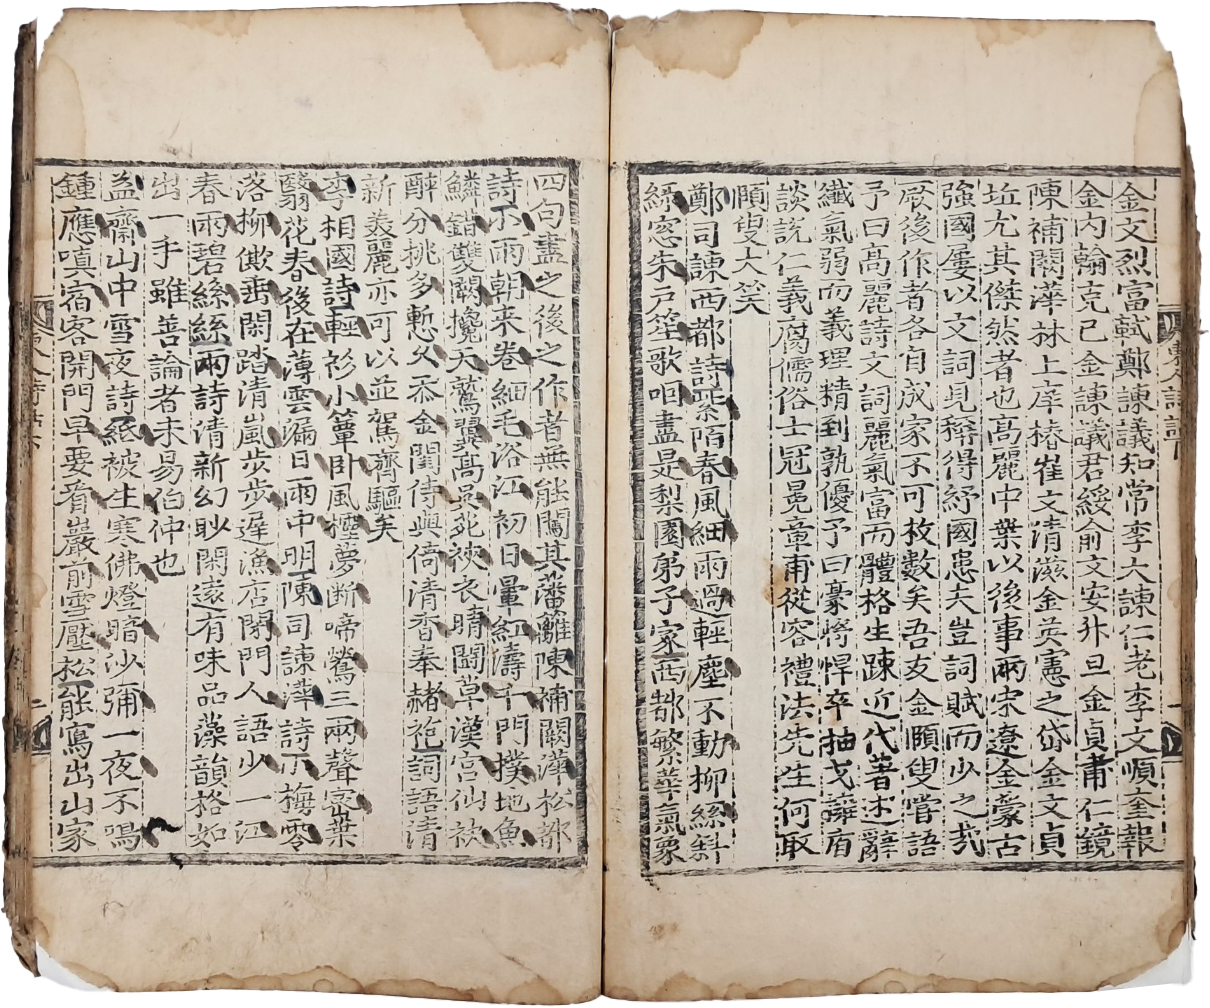 金文烈富軾鄭諫議知常李大諫仁老李文順奎報
金内翰克己金諫議君綏俞文安升旦金貞肅仁鏡
陳補闕澕林上庠椿崔文清滋金英憲之岱金文貞
坵尤其傑然者也高麗中葉以後事兩宋遼金蒙古
強國屢以文詞見稱得紓國患夫豈詞賦而少之哉
厥後作者各自成家不可枚數矣吾友金頤叟嘗語
予曰高麗詩文詞麗氣富而體格生踈近代著述辭
纖氣弱而義理精到孰優予曰豪將悍卒抽戈擁盾
談說仁義腐儒俗士冠冕章甫從容禮法先生何取
頤叟大笑
鄭司諫西都詩紫陌春風細雨過輕塵不動柳絲斜
綠窓朱戶笙歌咽盡是梨園弟子家西都繁華氣象
四句盡之後之作者無能闖其藩籬陳補闕澕松都
詩不雨朝来卷細毛浴江初日暈紅濤千門撲地魚
鱗錯雙闕攙天鷲翼高吳苑袂衣晴鬪草漢宮仙袂
醉分挑多慙久忝金閨侍與倚清香奉赭袍詞語清
新美麗亦可以並駕齊驅矣
李相國詩輕衫小簟臥風欞夢斷啼鶯三兩聲密葉
翳花春後在薄雲漏日雨中明陳司諫澕詩小梅零
落柳僛垂閑踏清嵐步步遲漁店閉門人語少一江
春雨碧絲絲兩詩清新幻眇閑遠有味品藻韻格如
出一手雖善論者未易伯仲也
益齋山中雪夜詩紙被生寒佛燈暗沙彌一夜不鳴
鍾應嗔宿客開門早要看巖前雪壓松能寫出山家